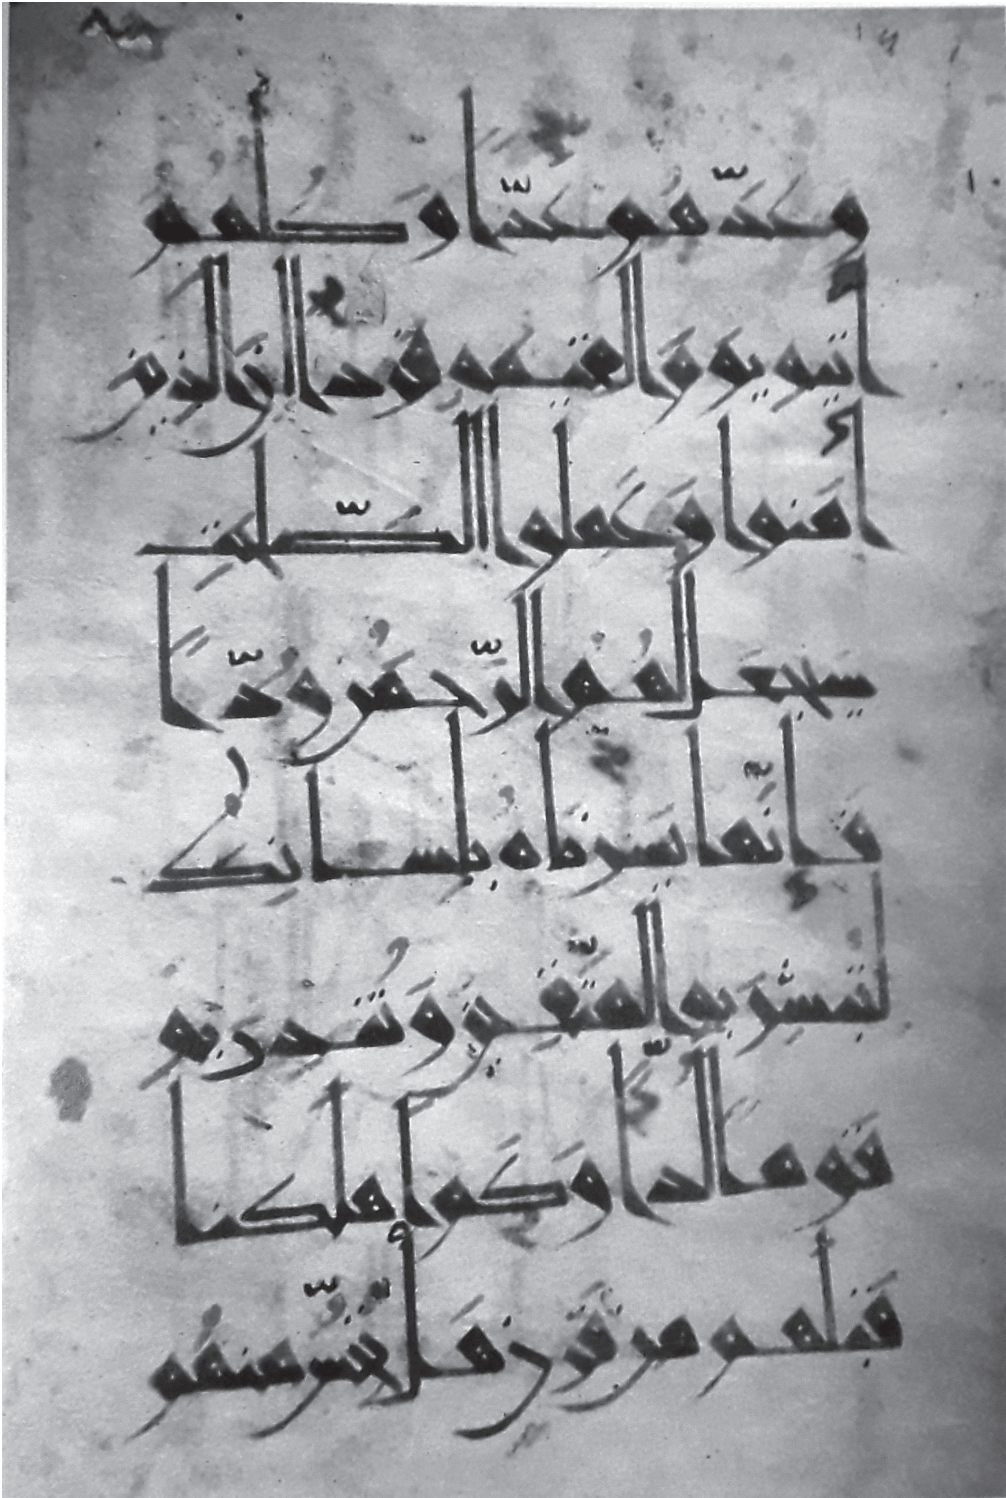 وَعَدَّهُمْ عَدًّا وَكُلُّهُمْ
آتِيهِ يَوْمَ الْقِيَمَةِ فَرْدًا إِنَّ الَّذِينَ
آمَنُوا وَعَمِلُوا الصَّلِحَتِ
سَيَجْعَلُ لَهُمُ الرَّحْمَنُ وُدًّا
فَإِنَّمَا يَسَّرْنَاهُ بِلِسَانِكَ
لِتُبَشِّرَ بِهِ الْمُتَّقِينَ وَتُنْذِرَ بِهِ
قَوْمًا لُدًّا وَكَمْ أَهْلَكْنَا
قَبْلَهُمْ مِنْ قَرْنٍ هَلْ تُحِسُّ مِنْهُمْ